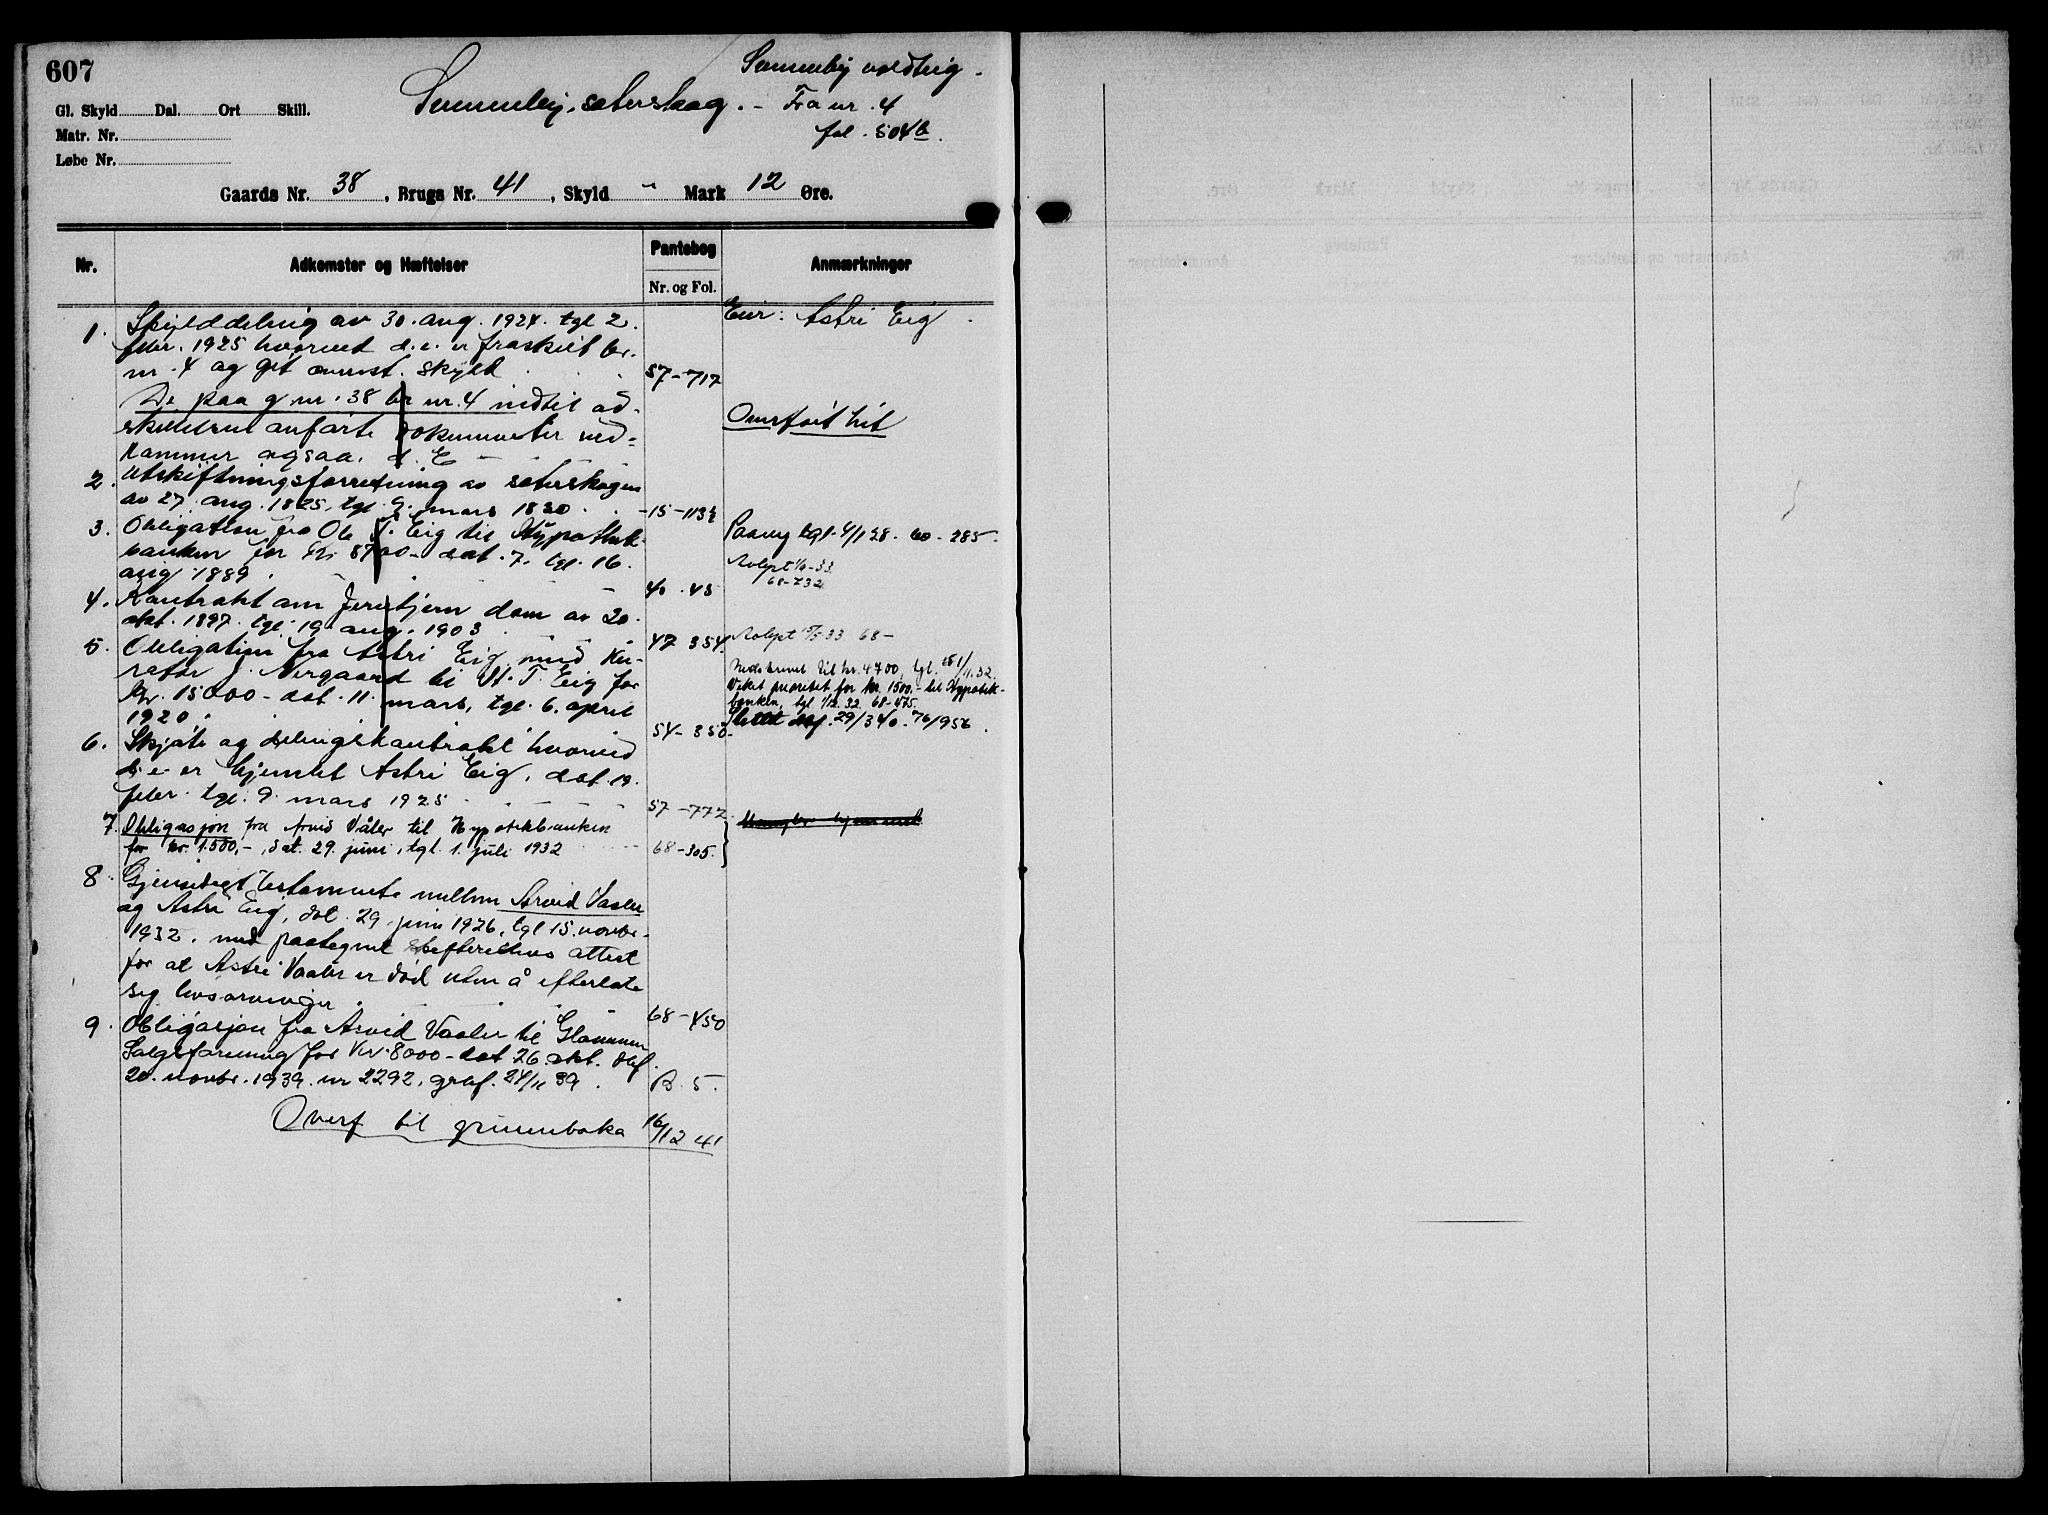 607
Gl. Skyld Dal. Ort Skill.
Matr. Nr.
Løbe Nr.
Semmeby sæterskog. - Fra nr. 4
Semmeby voldteig.
fol. 504b.
Gaards Nr. 38, Brugs Nr. 41, Skyld " Mark 12 Øre.
Nr. Adkomster og Hæftelser Pantebog Anmærkninger
Nr. og Fol.
1. Skylddeling av 30. aug. 1924. tgl 2.
febr. 1925 hvorved d. e. er fraskilt br.
nr. 4 og git ovennt. skyld 57-717
Eier: Astri Eig.
De paa g nr. 38 br nr. 4 indtil ad-
skillelsen anførte dokumenter ved-
kommer ogsaa d. E
Overført hit
2. Utskiftningsforretning av sæterskogen
av 27. aug. 1825, tgl. 9. mars 1830. 15-113½
3. Obligation fra Ole T. Eig til Hypothek-
banken for Kr 8700- dat. 7. tgl. 16.
aug 1889. 40.45
Paaveg tgl. 4/1 28. 60-285.
Avlyst 1/4-33.
68-732
4. Kontrakt om dam av 20.
okt. 1897. tgl. 19. aug. 1903. 47 354.
Avlyst 33 68-
5. Obligation fra Astri Eig med Ku-
rator J. Nergaard til T. Eig for
Kr. 15000- dat. 11. mars, tgl. 6. april
1920. 54-350-
Nedskrevet til kr. 4700, tgl. 11.32.
Veket prioritet for kr. 1500.- til Hypotek-
banken, tgl 1/12.32 68-475.
Slettet dagf. 29/3 40. 76/956.
6. Skjøte og delingskontrakt hvorved
d. e. er hjemlet Astri Eig, dat. 19.
febr. tgl. 9. mars 1925 57-772
7. Obligasjon fra Arvid Våler til Hypotekbanken
for kr. 1.500,-, dat. 29. juni, tgl. 1. juli 1932 68-305.
8. Gjensidigt testamente mellem Arvid Vaaler
og Astri Eig, dat. 29. juni 1926, tgl 15. novbr.
1932. med paategnet skifterettens attest
for at Astri Vaaler er død uten å efterlate
sig livsarvinger. 68-450
9. Obligasjon fra Arvid Vaaler til Glommen
Salgsforening for Kr. 8000- dat 26. okt. dbf.
20. novbr. 1939. nr 2292, graf. 24/11 39. B. 5.
Overf til grunnboka 16/12 41